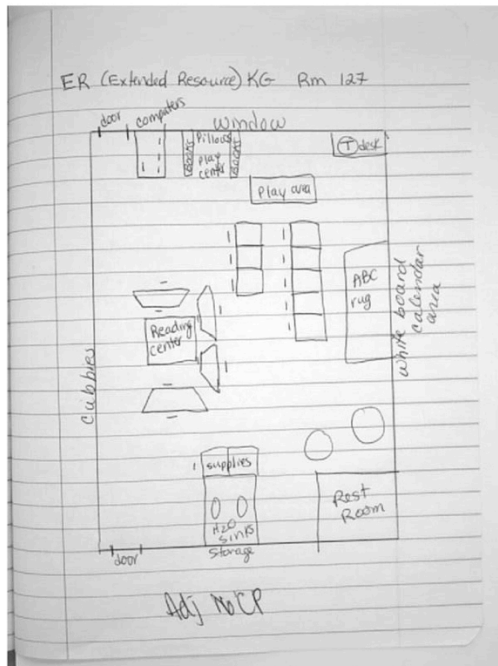 ER (Extended Resource) KG Rm 127
door computers
window
Books
Pillows
play
center
Books
T desk
Play area
ABC
rug
white board
calendar
area
Reading
center
cubbies
supplies
H2O
sinks
Storage
Rest
Room
door
Adj No CP